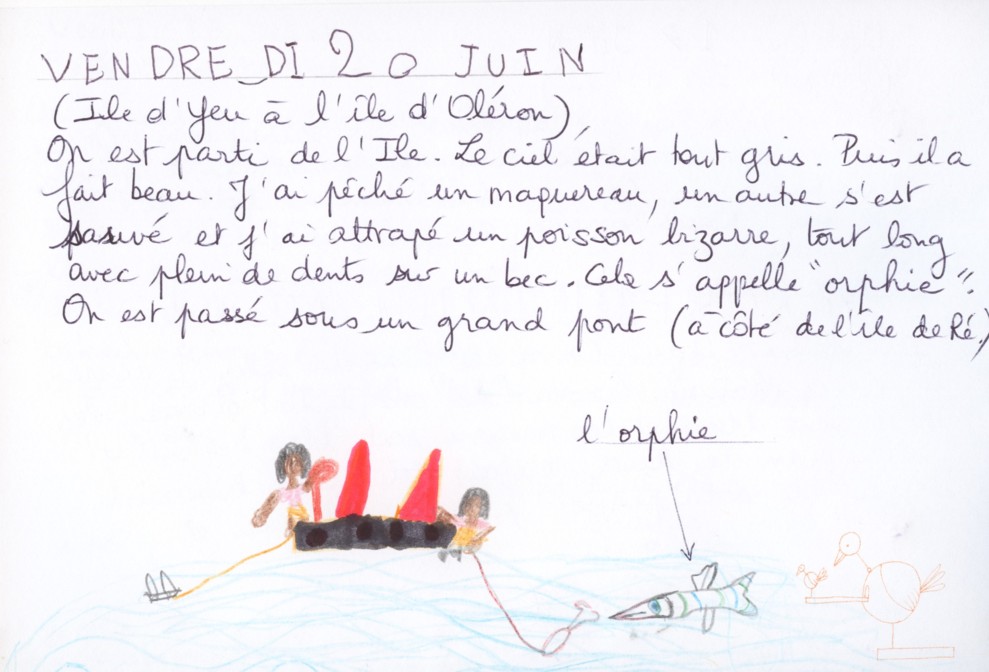 VENDREDI 20 JUIN
(Ile d'Yeu à l'île d'Oléron)
On est parti de l'Ile. Le ciel était tout gris. Puis il a
fait beau. J'ai pêché un maquereau, un autre s'est
sauvé et j'ai attrapé un poisson bizarre, tout long
avec plein de dents sur un bec. Cela s'appelle "orphie".
On est passé sous un grand pont (à côté de l'île de Ré.)
l'orphie